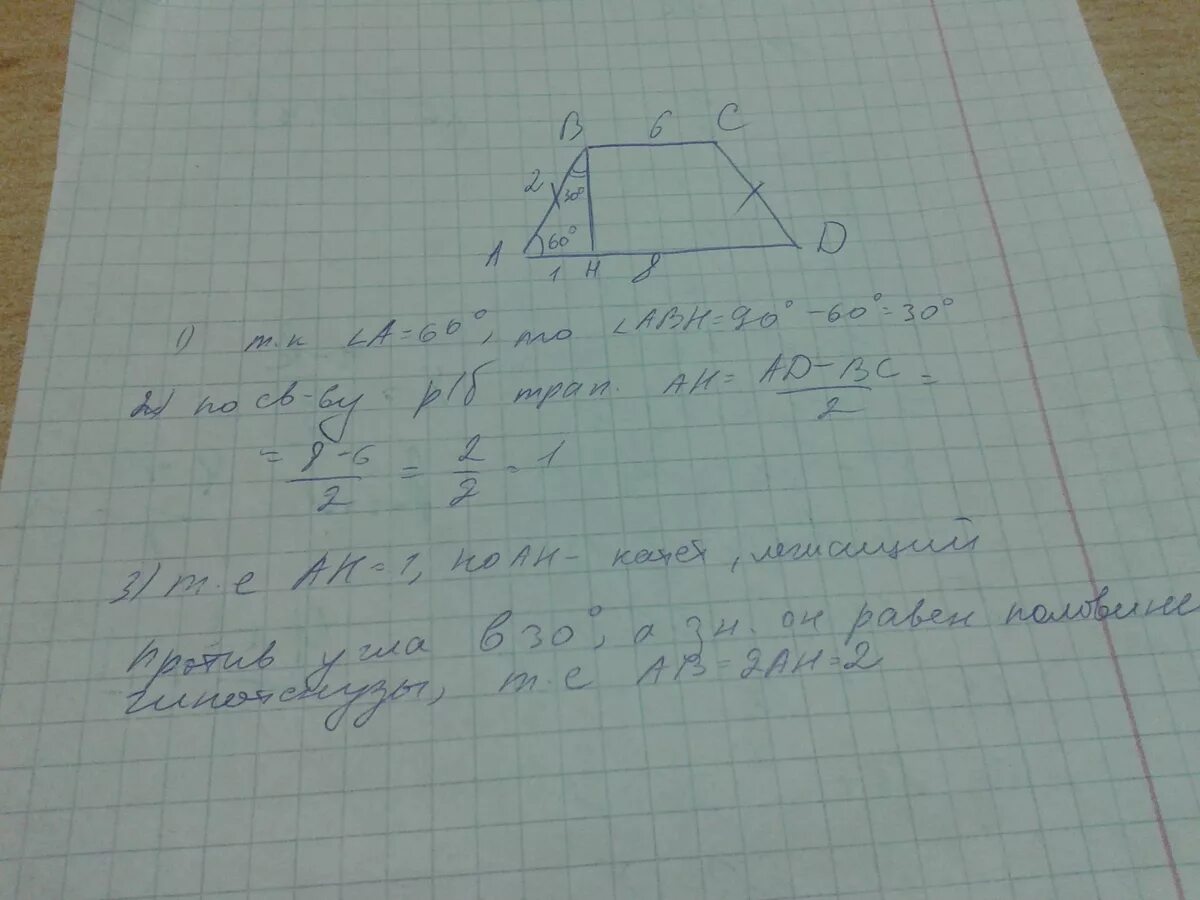 B 6 C
2 30°
A 60° D
1 H 8
1) т.к ∠A=60°, то ∠ABH=90°-60°=30°
2) по св-ву р/б трап. AH= AD-BC/2 =
= 8-6/2 = 2/2 = 1
3) т.е AH=1, но AH- катет, лежащий
против угла в 30°, а зн. он равен половине
гипотенузы, т.е AB=2AH=2